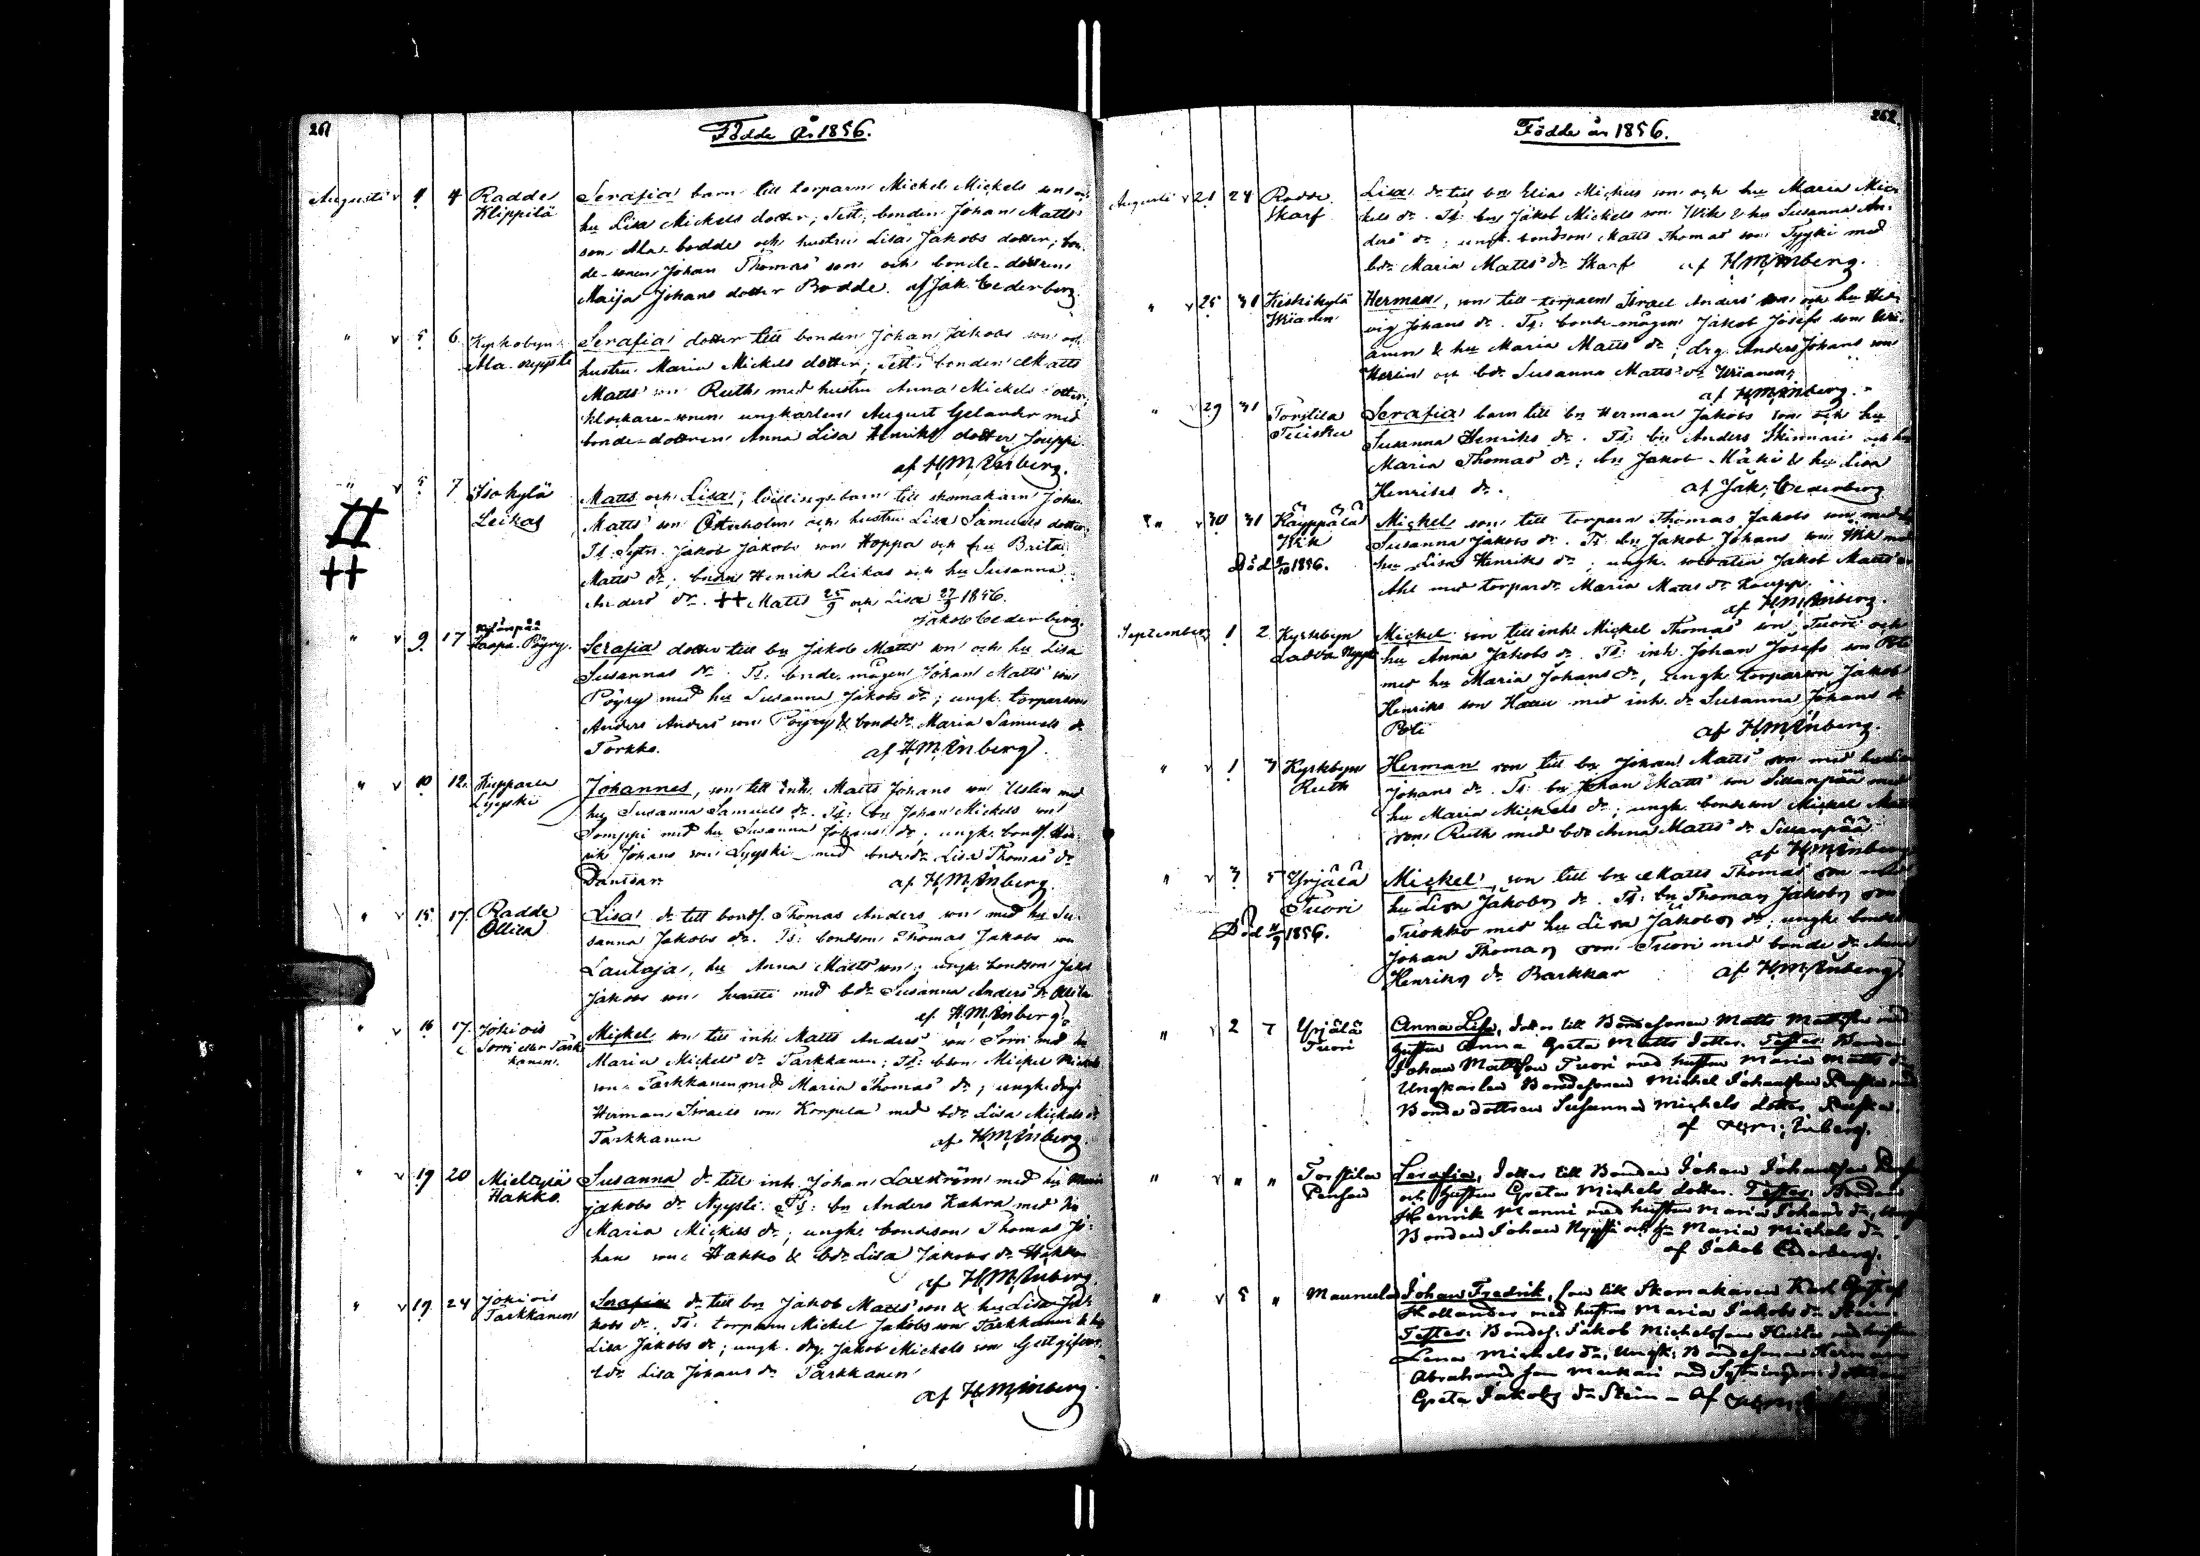 261
Födde år 1856.
Augusti v 4 4 Radde Klippilä
Serafia barn till torparen Mickel Mickels son och
hu Lisa Mickels dotter; Test: bonden Johan Matts
son Ala-bodde och hustru Lisa Jakobs dotter; bon-
de-sonen Johan Thomas son och bonde-dottren
Maija Johans dotter Bodde. af Jak. Cederberg.
" v 5 6 Kyrkobyn Ala-nyysti
Serafia dotter till bonden Johan Jakobs son och
hustru Maria Mickels dotter; Test: bonden Matts
Matts son Ruth med hustru Anna Mickels dotter;
klockare-sonen ungkarlen August Gelander med
bonde-dottren Anna Lisa Henriks dotter Jouppi
af H.M. Enberg.
" v 5 7 Isokylä Leikas
Matts och Lisa; tvillingsbarn till skomakaren Johan
Matts son Österholm och hustru Lisa Samuels dotter;
Ts. Sytn. Jakob Jakobs son Hoppa och hu Brita
Matts dr; bonden Henrik Leikas och hu Susanna
Anders dr. ++ Matts 25/9 och Lisa 27/9 1856.
Jakob Cederberg.
" v 9 17 Pöyry.
Serafia dotter till bn Jakob Matts son och hu Lisa
Susannas dr. Ts. bonde-mågen Johan Matts son
Pöyry med hu Susanna Jakobs dr; ungk. torparson
Anders Anders son Pöyry & bondedr Maria Samuels dr
Torkko. af H.M. Enberg.
" v 10 12 Lyyski
Johannes, son till inh. Matts Johans son Uslin med
hu Susanna Samuels dr. Ts: bn Johan Mickels son
Somppi med hu Susanna Johans dr; ungk. bonds. Hen-
rik Johans son Lyyski med bondedr Lisa Thomas dr
Danssar. af H.M. Enberg.
" v 15 17. Radde Ollila
Lisa dr till bonds. Thomas Anders son med hu Su-
sanna Jakobs dr. Ts: bondson Thomas Jakobs son
Lautaja, hu Anna Matts; ungk. bondson Jakob
Jakobs son Svartti med bdr Susanna Anders dr Ollila
af H.M. Enberg.
" v 16 17. Jokiois Sorri eller Tark- kanen.
Mickel son till inh. Matts Anders son Sorri med hu
Maria Mickels dr Tarkkanen; Ts: bson Mickel Mickels
son Tarkkanen med Maria Thomas dr; ungk. drg
Herman Israels son Korpela med bdr Lisa Mickels dr
Tarkkanen af H.M. Enberg.
" v 19 20 Mieltyjä Hakko.
Susanna dr till inh. Johan Laxström med hu Maria
Jakobs dr Nyysti. Ts: bn Anders Kahra med hu
Maria Mickels dr; ungk. bondeson Thomas Jo-
hans son Hakko & bdr Lisa Jakobs dr Hakko
af H.M. Enberg.
" v 19 24 Jokiois Tarkkanen
Serafia dr till bn Jakob Matts son & hu Lisa Ja-
kobs dr. Ts: torparen Mickel Jakobs son Tarkkanen & hu
Lisa Jakobs dr; ungk. drg. Jakob Mickels son
bdr Lisa Johans dr Tarkkanen
af H.M. Enberg.
262
Födde år 1856.
Augusti v 21 24 Radde Skarf
Lisa dr till bn Elias Mickels son och hu Maria Mic-
kels dr. Ts: bn Jakob Mickels son Wik & hu Susanna An-
ders dr; ungk. bondson Matts Thomas son Tyyki med
bdr Maria Matts dr Skarf af H.M. Enberg.
" v 25 31 Keskikylä Wrianen
Herman, son till torparen Israel Anders son och hu Hed-
vig Johans dr. Ts: bonde-mågen Jakob Josefs son Wri-
anen & hu Maria Matts dr; drg. Anders Johans son
Herlin och bdr Susanna Matts dr Wrianen
af H.M. Enberg.
" v 29 31 Torstila Tuisku
Serafia barn till bn Herman Jakobs son och hu
Susanna Henriks dr. Ts: bn Anders Skinnari och hu
Maria Thomas dr; bn Jakob Mäki & hu Lisa
Henriks dr. af Jak. Cederberg
" v 30 31 Käyppälä Wik
Död 9/10 1856.
Mickel son till torparen Thomas Jakobs son med hu
Susanna Jakobs dr. Ts: bn Jakob Johans son Wik med
hu Lisa Henriks dr; ungk. soldaten Jakob Matts son
Ahl med torpardr Maria Matts dr Kaupp.
af H.M. Enberg.
September 1 2 Kyrkbyn Ladva Nyysti
Mickel son till inh. Mickel Thomas son Tuori och
hu Anna Jakobs dr. Ts: inh. Johan Josefs son Poti
med hu Maria Johans dr, ungk. torparson Jakob
Henriks son med inh. dr Susanna Johans dr
Poti af H.M. Enberg.
" v 1 3 Kyrkbyn Ruth
Herman son till bn Johan Matts son med
Johans dr. Ts: bn Johan Matts son Sillanpää med
hu Maria Mickels dr; ungk. bondeson Mickel Matts
son Ruth med bdr Anna Matts dr Sillanpää
af H.M. Enberg
" v 3 5 Yrjälä Tuori
Död 4/9 1856.
Mickel, son till bn Matts Thomas son med
hu Lisa Jakobs dr. Ts: bn Thomas Jakobs son
Tuokko med hu Lisa Jakobs dr; ungk. bondes.
Johan Thomas son Tuori med bonde dr Anna
Henriks dr Barkkar af H.M. Enberg.
" v 2 7 Yrjälä Tuori
Anna Lisa, dotter till Bondesonen Matts Mattsson med
hustru Anna Greta Matts dotter. Testes: Bonden
Johan Mattsson Tuori med hustru Maria Matts dr
Ungkarlen Bondesonen Mickel Johansson med
Bondedottren Susanna Mickels dotter
af H.M. Enberg.
" v " " Torstila Penhar
Serafia, dotter till Bonden Johan Johansson
och hustru Greta Mickels dotter. Testes: Bonden
Henrik Manni med hustru Maria Johans dr,
Bonden Johan Nyysti och hu Maria Mickels dr.
af Jakob Cederberg.
" v 5 " Maunula
Johan Fredrik, son till Skomakaren Karl Gustaf
Hollander med hustru Maria Jakobs dr Stein.
Testes: Bondes. Jakob Mickelsson med hustru
Lena Mickels dr, Ungk: Bondesonen Herman
Abrahams son med
Greta Jakobs dr Stein - af